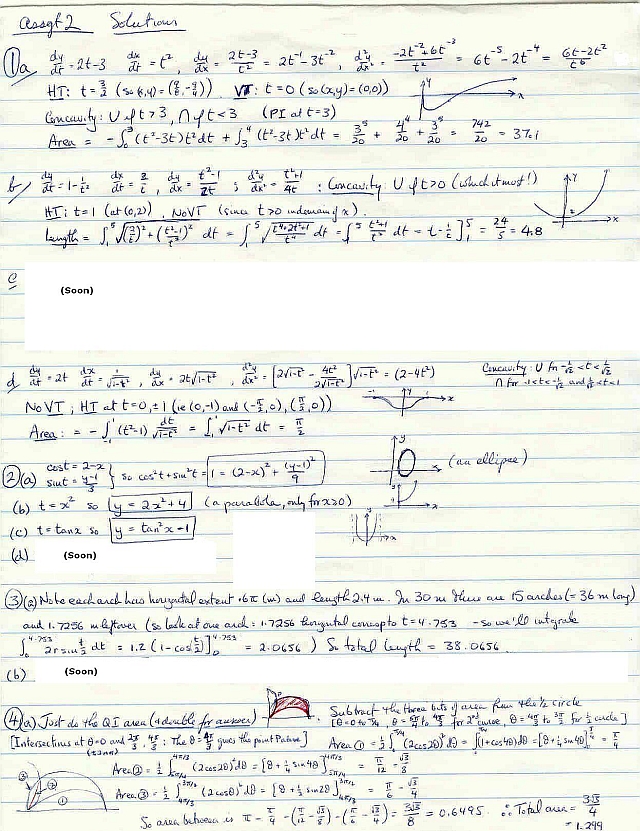 Assgt 2 Solutions
① a dy/dt = 2t-3 dx/dt = t², dy/dx = (2t-3)/t² = 2t⁻¹-3t⁻², d²y/dx² = (-2t⁻²+6t⁻³)/t² = 6t⁻⁵-2t⁻⁴ = (6t-2t²)/t⁶
HT: t = 3/2 (so (x,y) = (9/8, -9/4)) VT: t=0 (so (x,y) = (0,0))
Concavity: U if t>3, ∩ if t<3 (PI at t=3)
Area = -∫₀³ (t²-3t)t² dt + ∫₃⁴ (t²-3t)t² dt = 3⁵/20 + 4⁴/20 + 3⁵/20 = 742/20 = 37.1
b/ dy/dt = 1-1/t² dx/dt = 2/t, dy/dx = (t²-1)/2t ; d²y/dx² = (t²+1)/4t : Concavity: U if t>0 (which it must!)
HT: t=1 (at (0,2)). No VT (since t>0 in domain of x).
Length = ∫₁⁵ √((2/t)² + ((t²-1)/t²)²) dt = ∫₁⁵ √((t⁴+2t²+1)/t⁴) dt = ∫₁⁵ (t²+1)/t² dt = t-1/t]₁⁵ = 24/5 = 4.8
c
(Soon)
d dy/dt = 2t dx/dt = 1/√(1-t²), dy/dx = 2t√(1-t²), d²y/dx² = [2√(1-t²) - 4t²/(2√(1-t²))]√(1-t²) = (2-4t²) Concavity: U for -1/√2<t<1/√2
∩ for -1<t<-1/√2 and 1/√2<t<1
No VT; HT at t=0,±1 (ie (0,-1) and (-π/2,0), (π/2,0))
Area: = -∫₋₁¹ (t²-1) dt/√(1-t²) = ∫₋₁¹ √(1-t²) dt = π/2
② (a) cost = 2-x
sint = (y-1)/3 } so cos²t+sin²t = 1 = (2-x)² + (y-1)²/9 (an ellipse)
(b) t=x² so y = 2x²+4 (a parabola, only for x≥0)
(c) t=tanx so y = tan²x-1
(d) (Soon)
③ (a) Note each arch has horizontal extent .6π (m) and length 2.4 m. In 30 m there are 15 arches (= 36 m long)
and 1.7256 m leftover (so look at one arch: 1.7256 horizontal corresp to t = 4.753 - so we'll integrate
∫₀^4.753 2r sin t/2 dt = 1.2 (1-cos t/2)]₀^4.753 = 2.0656) So total length = 38.0656.
(b) (Soon)
④ (a). Just do the QI area (& double for answer) Subtract the three bits of area from the ½ circle
[Intersections at θ=0 and 2π/3, 4π/3: The θ=4π/3 gives the point P above] Area ① = ½∫ (2cos2θ)² dθ = ∫(1+cos4θ)dθ = [θ+¼sin4θ] = π/4
Area ② = ½ ∫ (2cos2θ)² dθ = [θ+¼sin4θ] = π/12 - √3/8
Area ③ = ½ ∫ (2cosθ)² dθ = [θ+½sin2θ] = π/6 - √3/4
So area between is π - π/4 - (π/12 - √3/8) - (π/6 - √3/4) = 3√3/8 = 0.6495 ∴ Total area = 3√3/4
= 1.299